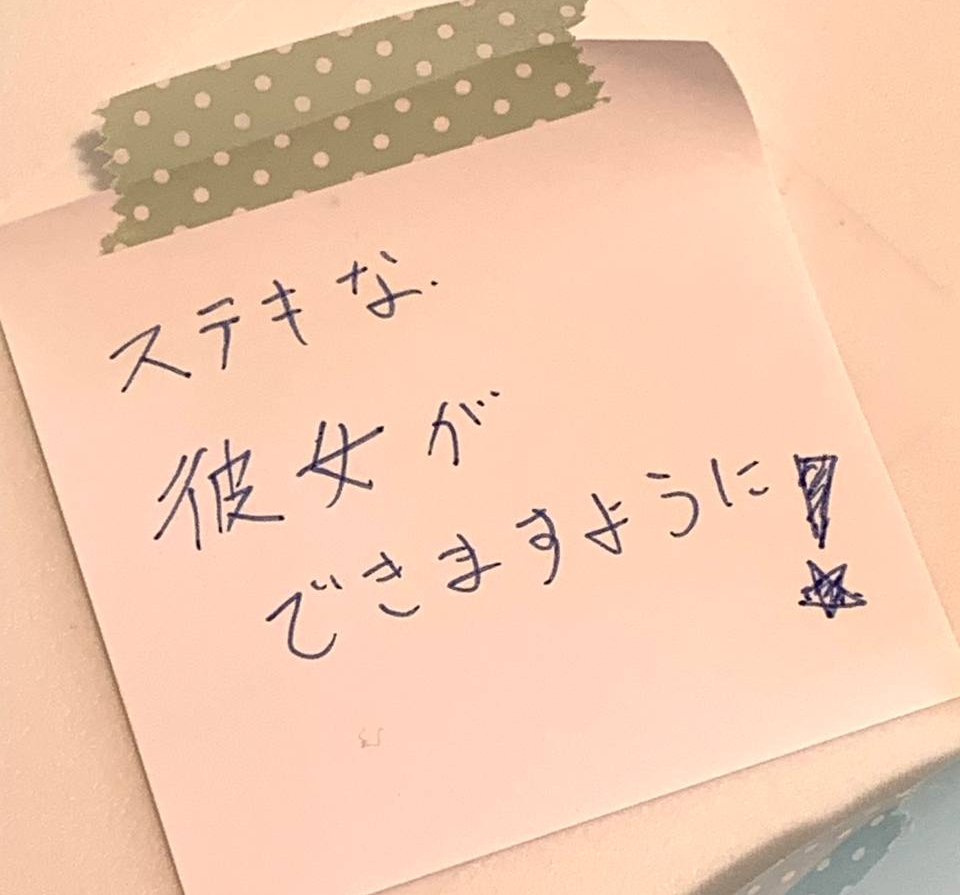 ステキな
彼女が
できますように!